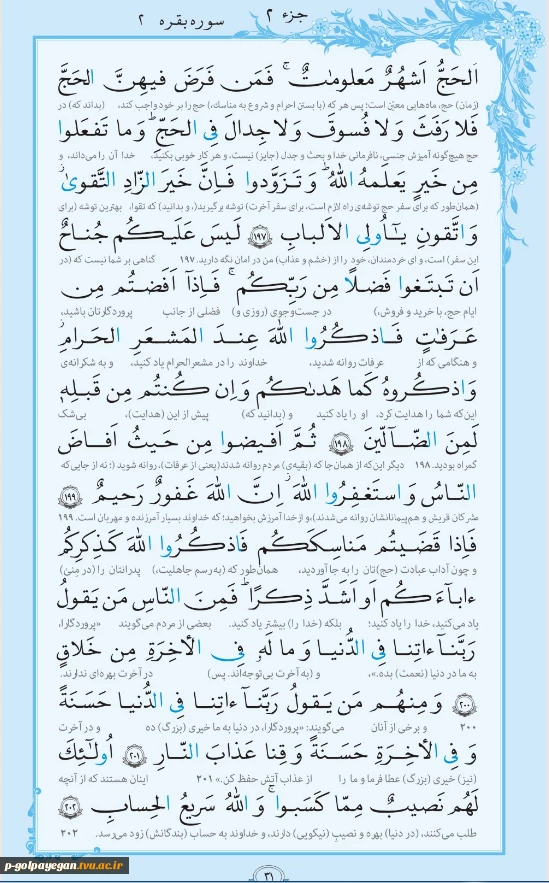 جزء ۲
سوره بقره ۲
اَلحَجُّ اَشهُرٌ مَعلوماتٌ ۚ فَمَن فَرَضَ فیهِنَّ الحَجَّ
(زمان) حج، ماه‌هایی معیّن است؛ پس هر که (با بستن احرام و شروع به مناسک)، حج را بر خود واجب کند، (بداند که) در
فَلا رَفَثَ وَ لا فُسوقَ وَ لا جِدالَ فِی الحَجِّ ۗ وَ ما تَفعَلوا
حج هیچ‌گونه آمیزش جنسی، نافرمانی خدا و بحث و جدل (جایز) نیست، و هر کار خوبی بکنید، خدا آن را می‌داند، و
مِن خَیرٍ یَعلَمهُ اللهُ ۗ وَ تَزَوَّدوا فَاِنَّ خَیرَ الزّادِ التَّقویٰ ۚ
(همان‌طور که برای سفر حج توشه‌ی راه لازم است، برای سفر آخرت) توشه برگیرید (، و بدانید) که تقوا، بهترین توشه (برای
وَ اتَّقونِ یـٰاُولِی الاَلبابِ ﴿۱۹۷﴾ لَیسَ عَلَیکُم جُناحٌ
این سفر) است، و ای خردمندان، خود را از (خشم و عذاب) من در امان نگه دارید. ۱۹۷ گناهی بر شما نیست که (در
اَن تَبتَغوا فَضلًا مِن رَبِّکُم ۚ فَاِذا اَفَضتُم مِن
ایام حج، با خرید و فروش،) در جست‌وجوی (روزی و) فضلی از جانب پروردگارتان باشید،
عَرَفاتٍ فَاذکُرُوا اللهَ عِندَ المَشعَرِ الحَرامِ ۖ
و هنگامی که از عرفات روانه شدید، خداوند را در مشعرالحرام یاد کنید، و به شکرانه‌ی
وَ اذکُروهُ کَما هَدىٰکُم وَ اِن کُنتُم مِن قَبلِهٖ
این‌که شما را هدایت کرد، او را یاد کنید و (بدانید که) پیش از این (هدایت)، بی‌شک
لَمِنَ الضّآلّینَ ﴿۱۹۸﴾ ثُمَّ اَفیضوا مِن حَیثُ اَفاضَ
گمراه بودید. ۱۹۸ دیگر این‌که از همان‌جا که (بقیه‌ی) مردم روانه شدند (یعنی از عرفات)، روانه شوید (؛ نه از جایی که
النّاسُ وَ استَغفِرُوا اللهَ ۚ اِنَّ اللهَ غَفورٌ رَحیمٌ ﴿۱۹۹﴾
مشرکان قریش و هم‌پیمانانشان روانه می‌شدند)، و از خدا آمرزش بخواهید؛ که خداوند بسیار آمرزنده و مهربان است. ۱۹۹
فَاِذا قَضَیتُم مَناسِکَکُم فَاذکُرُوا اللهَ کَذِکرِکُم
و چون آداب عبادت (حج)تان را به جا آوردید، همان‌طور که (به رسم جاهلیت)، پدرانتان را (در مِنیٰ)
ءاباءَکُم اَو اَشَدَّ ذِکرًا ۗ فَمِنَ النّاسِ مَن یَقولُ
یاد می‌کنید، خدا را یاد کنید؛ بلکه (خدا را) بیشتر یاد کنید. بعضی از مردم می‌گویند «پروردگارا،
رَبَّنا ءاتِنا فِی الدُّنیا وَ ما لَهٗ فِی الاٰخِرَةِ مِن خَلاقٍ
به ما در دنیا (نعمت) بده.»، و (به آخرت بی‌توجه‌اند. پس) در آخرت بهره‌ای ندارند.
﴿۲۰۰﴾ وَ مِنهُم مَن یَقولُ رَبَّنا ءاتِنا فِی الدُّنیا حَسَنَةً
۲۰۰ و برخی از آنان می‌گویند: «پروردگارا، در دنیا به ما خیری (بزرگ) ده و در آخرت
وَ فِی الاٰخِرَةِ حَسَنَةً وَ قِنا عَذابَ النّارِ ﴿۲۰۱﴾ اُولٰئِکَ
(نیز) خیری (بزرگ) عطا فرما و ما را از عذاب آتش حفظ کن.» ۲۰۱ اینان هستند که از آنچه
لَهُم نَصیبٌ مِمّا کَسَبوا ۚ وَ اللهُ سَریعُ الحِسابِ ﴿۲۰۲﴾
طلب می‌کنند، (در دنیا) بهره و نصیبِ (نیکویی) دارند، و خداوند به حساب (بندگانش) زود می‌رسد. ۲۰۲
p-golpayegan.tvu.ac.ir
۳۱